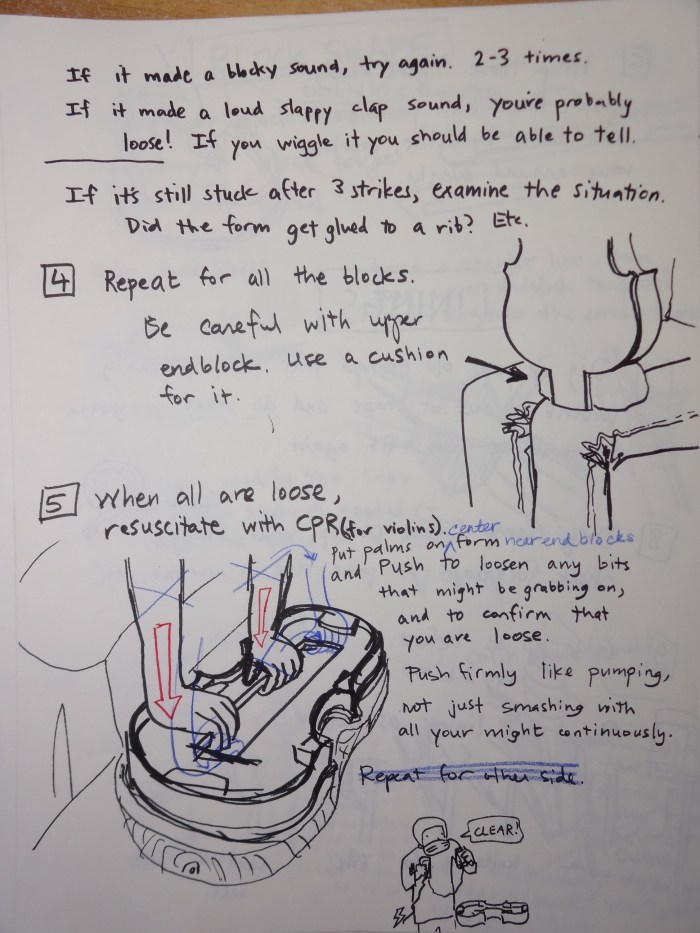 If it made a blocky sound, try again. 2-3 times.
If it made a loud slappy clap sound, you're probably
loose! If you wiggle it you should be able to tell.
If it's still stuck after 3 strikes, examine the situation.
Did the form get glued to a rib? Etc.
4 Repeat for all the blocks.
Be careful with upper
endblock. Use a cushion
for it.
5 When all are loose,
resuscitate with CPR (for violins).
Put palms on center form near end blocks
and Push to loosen any bits
that might be grabbing on,
and to confirm that
you are loose.
Push firmly like pumping,
not just smashing with
all your might continuously.
Repeat for other side.
CLEAR!